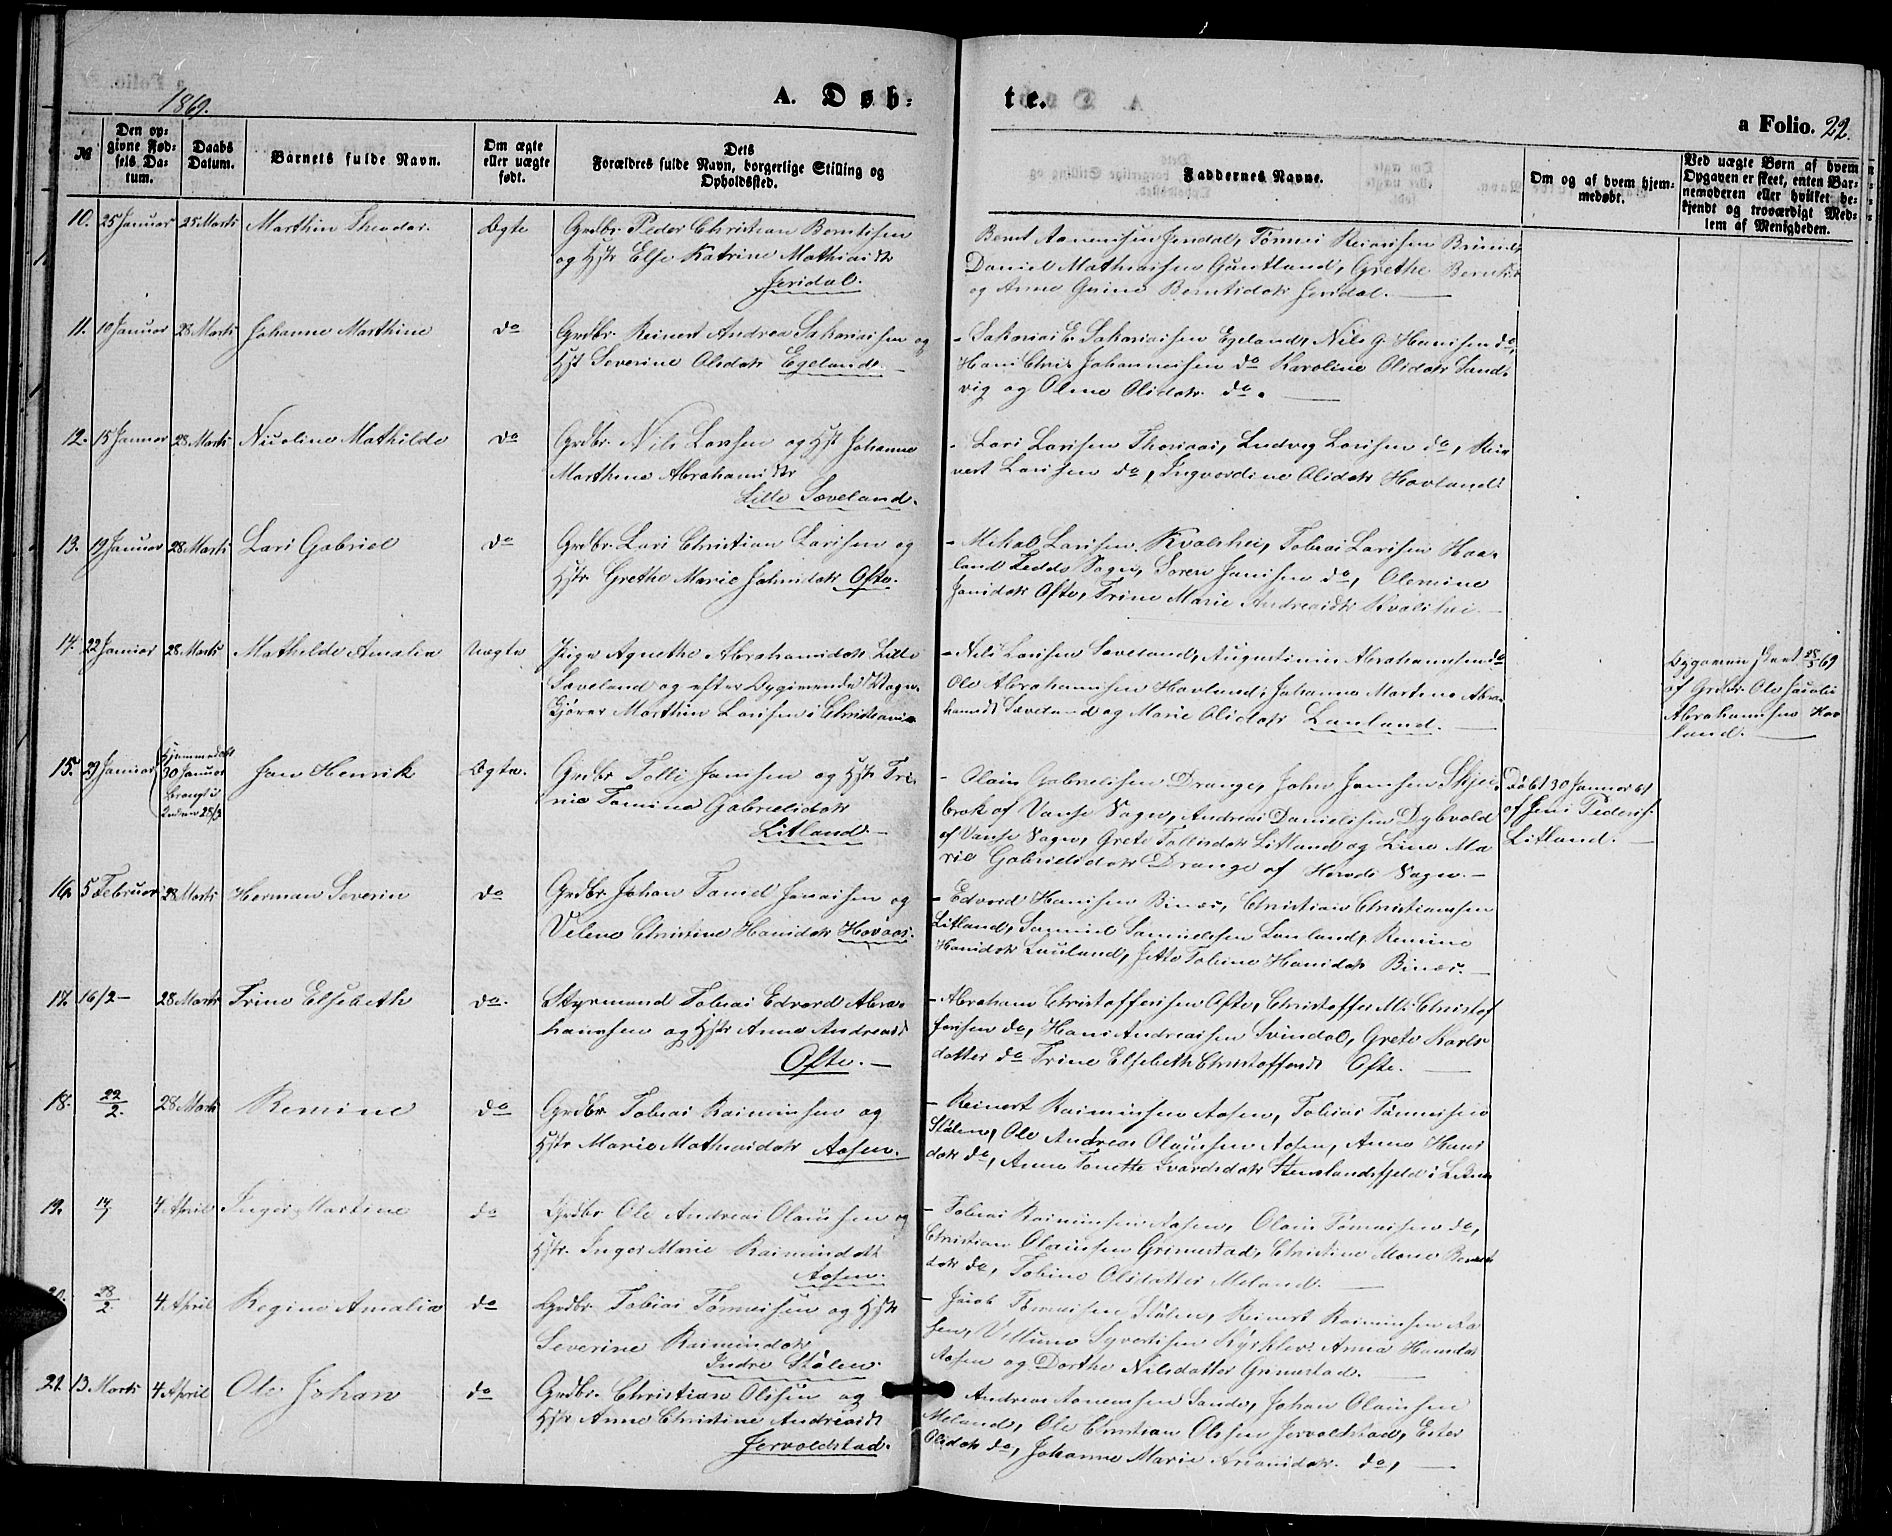 1869.
A. Døb-
te.
a Folio. 22.
№
Den op-
givne Fød-
sels Da-
tum.
Daabs
Datum.
Barnets fulde Navn.
Om ægte
eller uægte
født.
Dets
Forældres fulde Navn, borgerlige Stilling og
Opholdssted.
Faddernes Navne.
Om og af hvem hjem-
medøbt.
Ved uægte Børn af hvem
Opgaven er skeet, enten Bar-
nemoderen eller hvilket be-
kjendt og troværdigt Med-
lem af Menigheden.
10. 25 Januar 25 Marts Marthin Theodor. Ægte Grdbr. Peder Christian Berntsen
og Hstr Else Katrine Mathiasdtr
Jerdal.
Daniel Mathiassen Grethe
og Anne Berntsdatr Jerdal.
11. 10 Januar 28 Marts Johanne Marthine do Grdbr. Reinert Andreas Sakariasen og
Hst Severine Olsdatr Egeland
Sakarias E. Sakariasen Egeland, Nils G. Hansen do,
Hans Chr. Johannessen do Karoline Olsdatr Sand-
vig og Olene Olsdatr. do.
12. 15 Januar 28 Marts Nicoline Mathilde do Grdbr. Nils Larsen og Hst Johanne
Marthine Abrahamsdtr
Lille Sæveland.
Lars Larsen Ludvig Larsen do, Rein-
vert Larsen do, Ingvordine Olsdatr Hovland.
13. 19 Januar 28 Marts Lars Gabriel do Grdbr. Lars Christian Larsen og
Hstr. Grethe Marie Jansdatr Ofte.
Mikal Larsen Kvalshei, Tobias Larsen Haa-
land Sogn, Søren Jansen do, Olemine
Jansdatr Ofte, Trine Marie Andreasdtr Kvalshei
14. 22 Januar 28 Marts Mathilde Amalia Uægte Pige Agnethe Abrahamsdatr Lille
Sæveland og efter Opgivende Vogn-
kjører Marthin Larsen i Christiania
Nils Larsen Sæveland, Augustinus Abrahamsen do
Ole Abrahamsen Hovland, Johanne Martine Abra-
hamsdt Sæveland og Marie Olsdatr Lauland.
Opgaven skeet 28/3 69
af Grdbr. Ole Jacob
Abrahamsen Hov
land.
15. 29 Januar Hjemmedøbt
30 Januar
bragt i
Kirken 28/3 Jan Henrik Ægte. Grdbr Tollis Jansen og Hstr Tri-
ne Tomine Gabrielsdatr
Litland
Olaus Gabrielsen Drange, John Jansen Skjei-
brok af Vanse Sogn, Andreas Danielsen Dybvold
af Vanse Sogn, Grete Tollisdatr Litland og Line Ma
rie Gabrielsdatr Drange af Herads Sogn.
Døbt 30 Januar 69
af Jens Peders.
Litland.
16. 5 Februar 28 Marts Herman Severin do Grdbr. Johan Tomel og
Velene Christine Hansdatr Hovaas.
Edvard Hansen Binæs, Christian Christiansen
Litland, Samuel Samuelsen Lauland, Remine
Hansdatr Lauland, Jette Tobine Hansdatr Binæs.
17. 16/2 28 Marts Trine Elsebeth do. Styrmand Tobias Edvard Abra-
hamsen og Hstr Anne Andreasdt
Ofte.
Abraham Christoffersen Ofte, Christoffer M. Christof
fersen do, Hans Andreassen Svindal, Grete Karls
datter do Trine Elsebeth Christoffersdt Ofte.
18. 22/2. 28 Marts Remine do Grdbr. Tobias Raimunsen og
Hstr Marie Mathiasdatr Aasen.
Reinert Raimunsen Aasen, Tobias Tønnesen
Stølen, Ole Andreas Olausen Aasen, Anne Hans
datr do, Anne Tonette Stenslandsfjeld
19. 14/1 4 April Inger Martine do Grdbr. Ole Andreas Olausen og
Hstr. Inger Marie Raimundatt
Aasen.
Tobias Raimunsen Aasen, Olaus Tønnesen do,
Christian Olausen Grimestad, Christine Marie
datr do, Tobine Olsdatter Meland.
20. 28/2 4 April Regine Amalia do Grdbr. Tobias Tønnesen og Hstr
Severine Raimundatr
Indre Stølen.
Jacob Tønnesen Stølen, Reinert Raimunsen Aa-
sen, Villum Syvertsen Anna
Aasen og Dorthe Nilsdatter Grimestad.
21. 13 Marts 4 April Ole Johan do Grdbr. Christian Olsen og
Hstr Anne Christine Andreasdt
Jervoldstad.
Andreas Sande, Johan Olausen
Meland, Ole Christian Olsen Jervoldstad, Ester
Olsdatr do, Johanne Marie do,